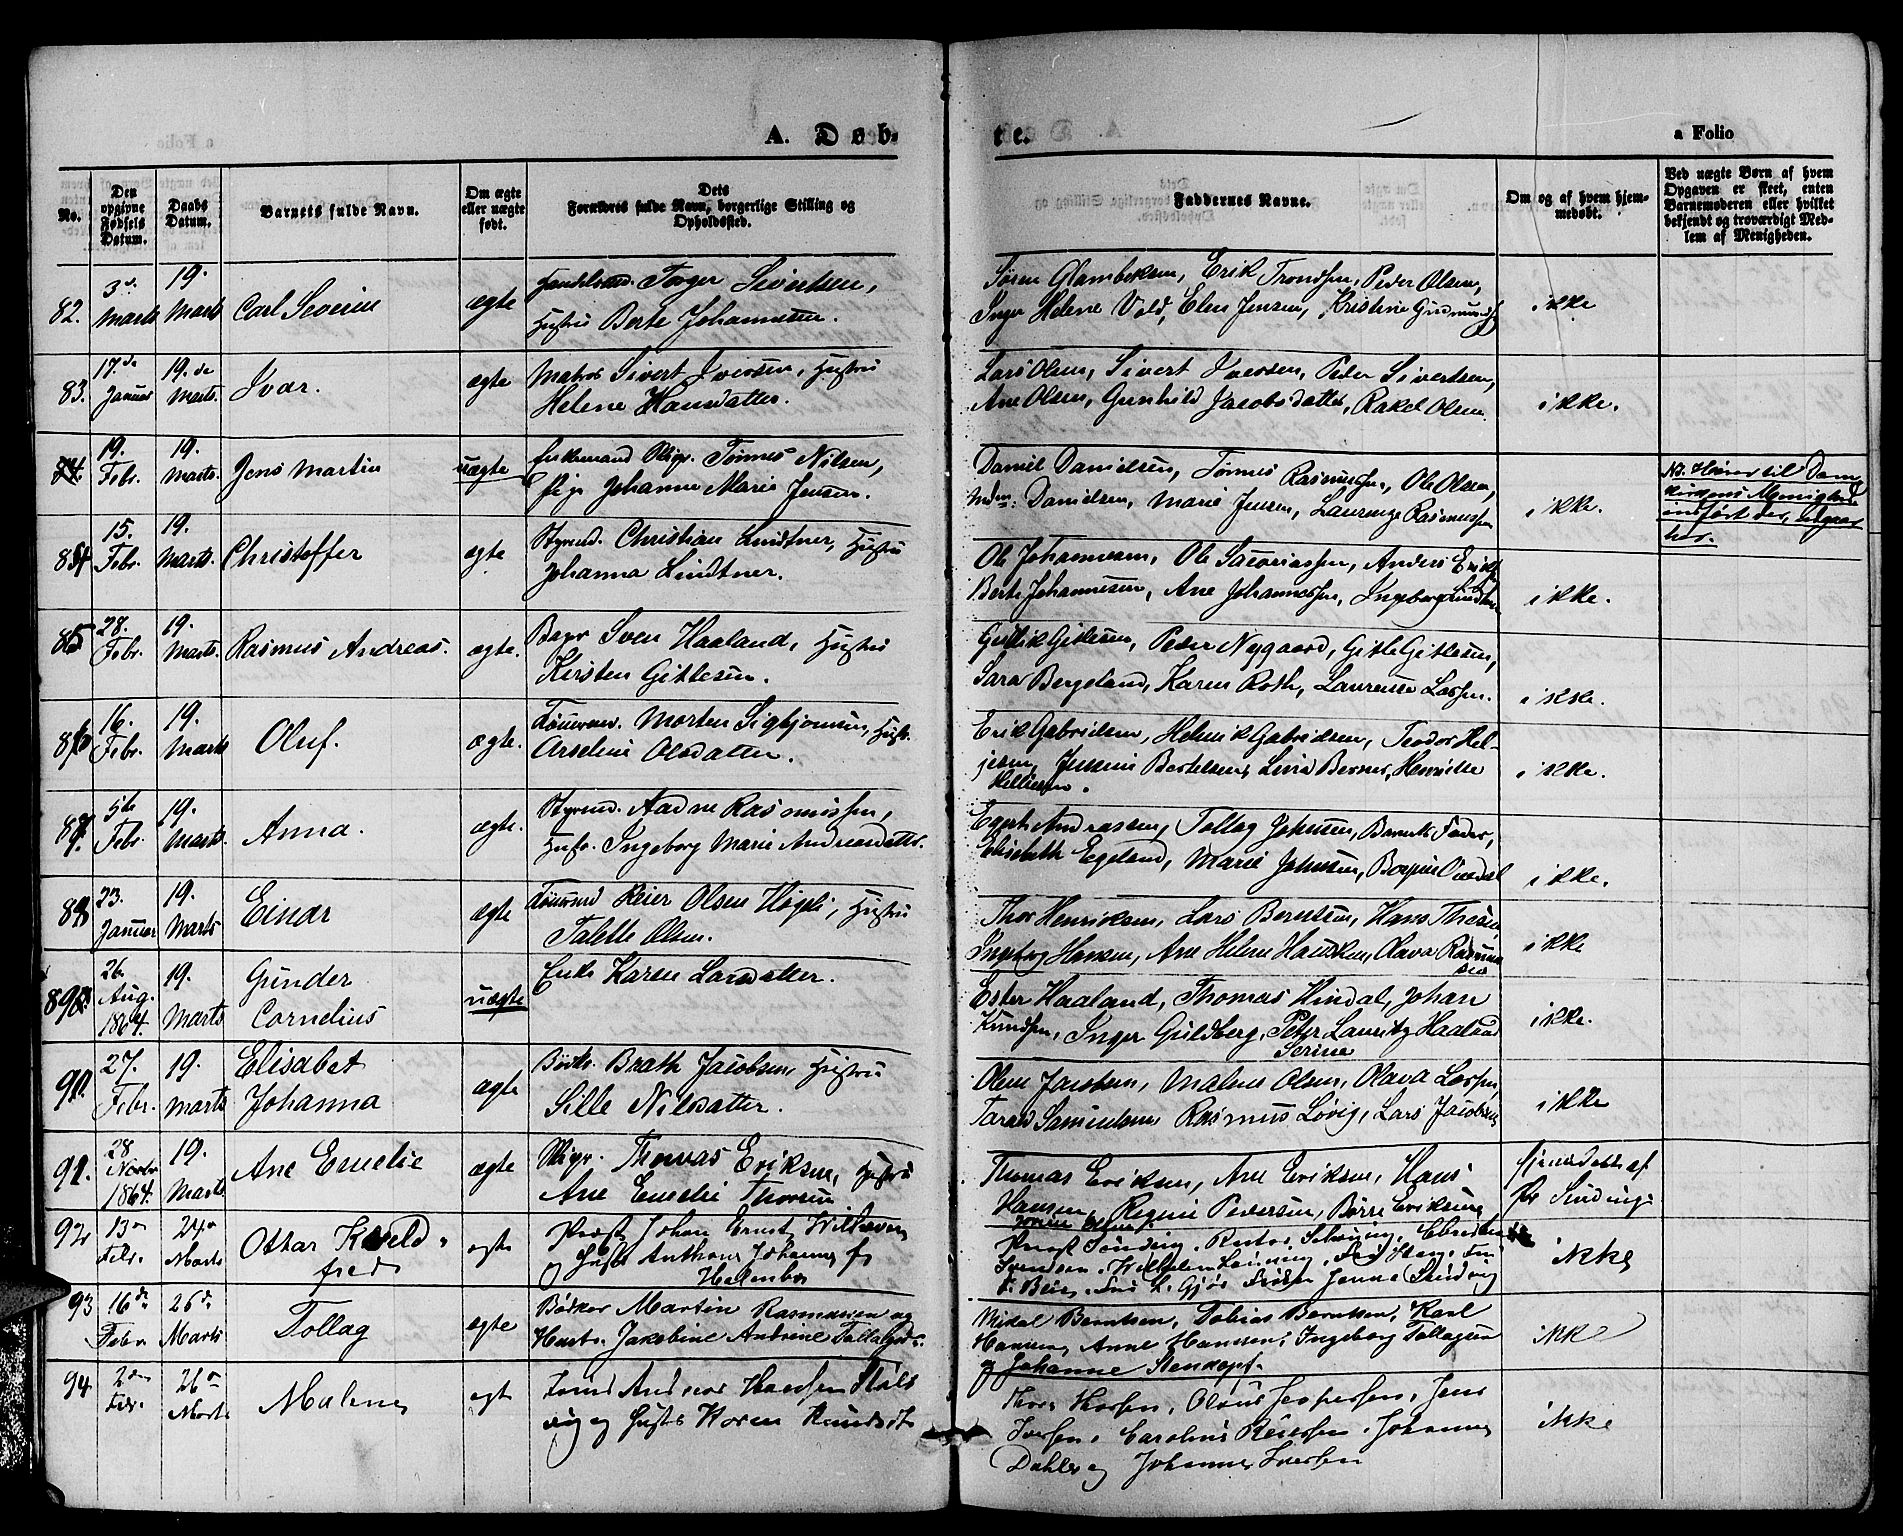 A. Døb-
te.
a Folio
No.
Den opgivne Fødsels Datum.
Daabs Datum.
Barnets fulde Navn.
Om ægte eller uægte født.
Dets Forældres fulde Navn, borgerlige Stilling og Opholdssted.
Faddernes Navne.
Om og af hvem hjem-
medøbt.
Ved uægte Børn af hvem
Opgaven er skeet, enten
Barnemoderen eller hvilket
bekjendt og troværdigt Med-
lem af Menigheden.
82. 3die Marts 19. Marts Carl Severin ægte Torger Sivertsen,
Hustru Berte Johannesen.
Søren Erik Trondsen, Peder Olsen,
Inger Helene Vold, Elen Jensen, Kristine
ikke
83. 17.de Januar 19.de Marts. Ivar. ægte Matros Sivert Iversen, Hustru
Helene Hansdatter.
Lars Olsen, Sivert Iversen, Peder Sivertsen,
Ane Olsen, Gunhild Jacobsdatter, Rakel Olsen
ikke.
84. 19. Febr. 19. Marts. Jens Martin uægte Enkemand Tønnes Nilsen,
Pige Johanne Marie Jensen.
Daniel Danielsen, Tønnes Rasmussen, Ole Olsen,
Danielsen, Marie Jensen, Laurenze Rasmussen
ikke.
NB. Hører til Dom-
kirkens Menighed
indført der, udgaar
her.
84 15. Febr. 19. Marts. Christoffer ægte Styrmd. Christian Lindtner, Hustru
Johanna Lindtner.
Ole Johannesen, Ole Sacariassen, Anders
Berte Johannesen, Ane Johannessen, Ingeborg
ikke.
85 28. Febr. 19. Marts. Rasmus Andreas. ægte. Sven Haaland, Hustru
Kirsten Gitlesen.
Gitlesen, Peder Nygaard, Gitle Gitlesen,
Sara Bergeland, Karen Roth, Laurense Larsen.
ikke.
86 16. Febr. 19. Marts Oluf. ægte. Morten Sigbjørnsen, Hustr.
Olsdatter.
Erik Gabrielsen, Henrik Gabrielsen, Teodor Hel-
jesen, Bertelsen, Lina Berner, Henriette
Helliesen.
ikke.
87. 5te Febr. 19. Marts. Anna. ægte. Styrmd. Aadne Rasmussen,
Hustr. Ingeborg Marie Andreasdatter.
Egert Andreasen, Tollag Johnsen, Barnets Fader,
Elisabeth Egeland, Marie Johnsen,
ikke.
88 23. Januar 19. Marts Einar ægte Reier Olsen Høgli, Hustru
Talette Olsen.
Thor Henriksen, Lars Berntsen, Hans
Ingeborg Hansen, Ane Helene Olava Rasmus-
sen
ikke
89. 26. Aug. 1864. 19. Marts Gunder
Cornelius
uægte Enke Karen Larsdatter.
Ester Haaland, Thomas Hindal, Johan
Knudsen, Inger Guldberg, Peter Lauritz Haaland
Serine
ikke.
90. 27. Febr. 19. Marts Elisabet
Johanna
ægte Bødk. Brath Jacobsen, Hustru
Sille Nilsdatter.
Olene Jacobsen, Malene Olsen, Olava Larsen
Tarald Samuelsen, Rasmus Løvig, Lars Jacobsen
ikke
91. 28 Novbr. 1864. 19. Marts Ane Emelie ægte Thomas Eriksen, Hustru
Ane Emelie Thorsen
Thomas Eriksen, Ane Eriksen, Hans
Hansen, Regine Pedersen, Børre Eriksen
hjemmedøbt af
Pr. Sinding
92 13de Febr. 24de Marts Ottar Kveld-
fred
ægte Præst Johan Ernst Wilhaven
Hust. Anthone Johanne f.
Præst Sinding, Rektor Schøning,
Svendsen, Wilhelm Lønning,
Gjør Frøken Janna Sinding
ikke
93 16de Febr. 26de Marts Tollag ægte Bødker Martin Rasmussen og
Hustr. Jakobine Andrene
Mikal Berntsen, Tobias Berntsen, Karl
Hansen, Anne Hansen, Ingeborg Tollagsen
og Johanne
ikke
94 2den Febr. 26de Marts Malene ægt Andreas Hansen
og Hustr. Karen
Thore Olaus Jespersen, Jens
Iversen, Caroline Reiersen, Johanne
Dahle og Johanne Iversen
ikke